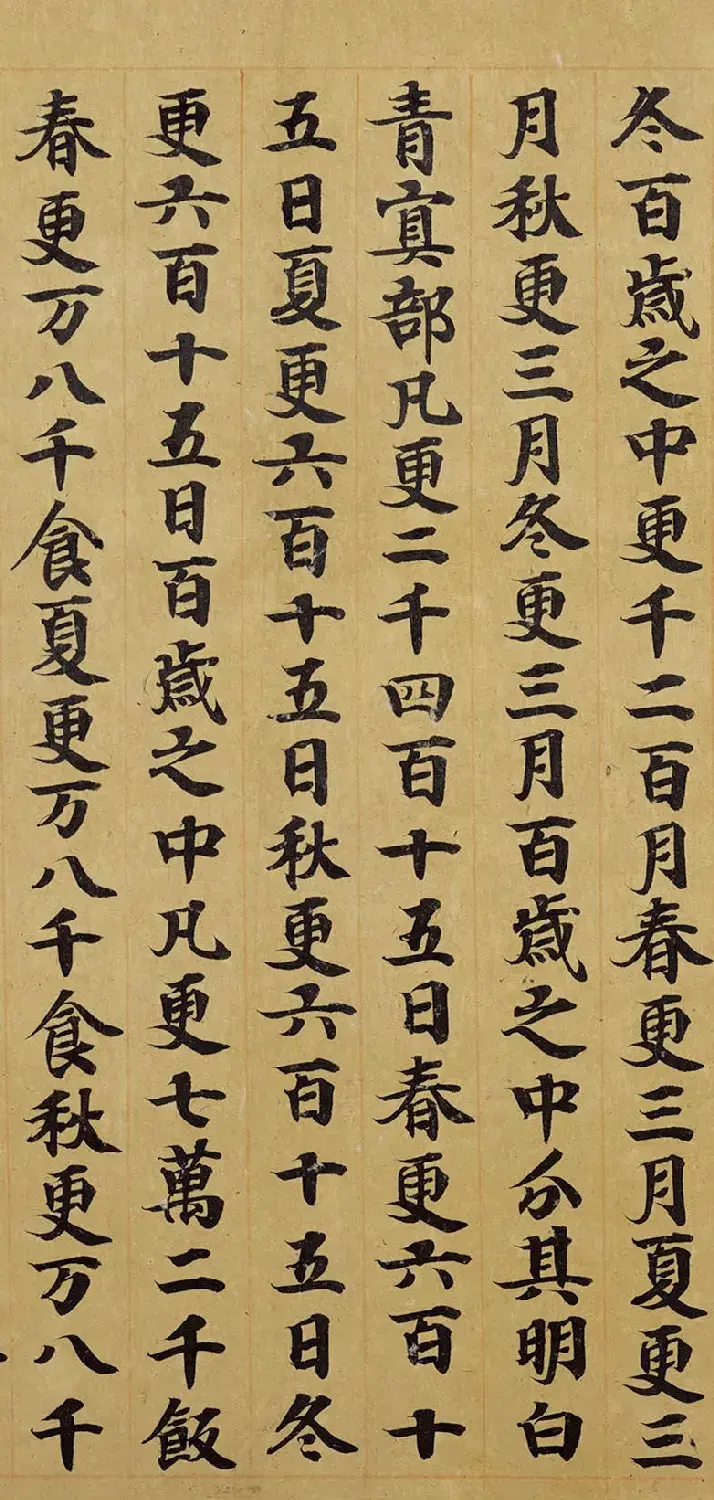 冬百歳之中更千二百月春更三月夏更三
月秋更三月冬更三月百歳之中分其明白
青㝠部凡更二千四百十五日春更六百十
五日夏更六百十五日秋更六百十五日冬
更六百十五日百歳之中凡更七萬二千飯
春更万八千食夏更万八千食秋更万八千